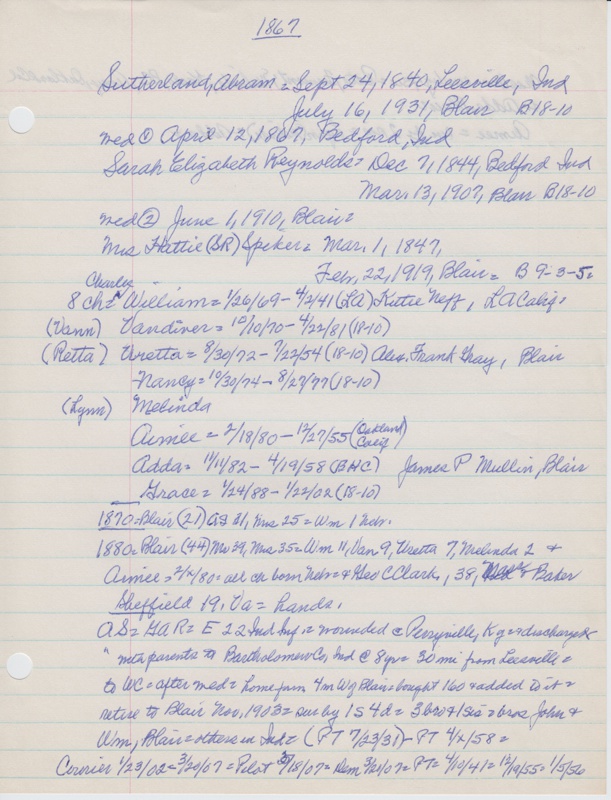 1867
Sutherland, Abram = Sept 24, 1840, Leesville, Ind
July 16, 1931, Blair B18-10
med ① April 12, 1867, Bedford, Ind
Sarah Elizabeth Reynolds = Dec 7, 1844, Bedford Ind
Mar. 13, 1907, Blair B18-10
med ② June 1, 1910, Blair =
Mrs Hattie (SR) Spiker = Mar. 1, 1847,
Feb, 22, 1919, Blair = B 9-3-5.
Charles
8 ch = William = 1/26/69 - 4/2/41 (LA) Kittie Neff, LA Calif.
(Vann) Vandiver = 10/10/70 - 4/22/81 (18-10)
(Retta) Uretta = 8/30/72 - 7/22/54 (18-10) Alex. Frank Gray, Blair
Nancy = 10/30/74 - 8/27/77 (18-10)
(Lynn) Melinda
Aimee = 2/18/80 - 12/27/55 (Oakland Calif)
Adda = 11/11/82 - 4/19/58 (BHC) James P Mullin, Blair
Grace = 1/24/88 - 1/22/02 (18-10)
1870 = Blair (27) AS 31, Mrs 25 = Wm 1 Nebr.
1880 = Blair (44) Mr 39, Mrs 35 = Wm 11, Van 9, Uretta 7, Melinda 2 &
Aimee = 2/ /80 = all ch born Nebr = & Geo C Clark, 38, & Baker
Sheffield 19, Va = hands.
AS = GAR = E 22 Ind Inf = wounded @ Perryville, Ky = & discharged =
" with parents to Bartholomew Co, Ind @ 8 yr = 30 mi from Leesville =
to WC = after med = home farm 4m W of Blair = bought 160 & added to it =
retire to Blair Nov, 1903 = sur by 1S 4d = 3 bro & 1 sis = bros John &
Wm, Blair = others in Ind = (PT 7/23/31) - PT 4/2/58 =
Courier 1/23/02 = 3/20/07 = Pilot /18/07 = Dem 3/21/07 = PT = 4/10/41 = 12/19/55 = 1/5/56